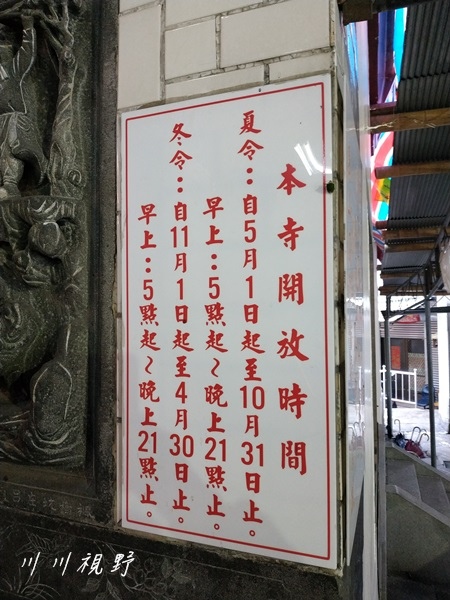 本寺開放時間
夏令：自5月1日起至10月31日止。
早上：5點起～晚上21點止。
冬令：自11月1日起至4月30日止。
早上：5點起～晚上21點止。
川川視野